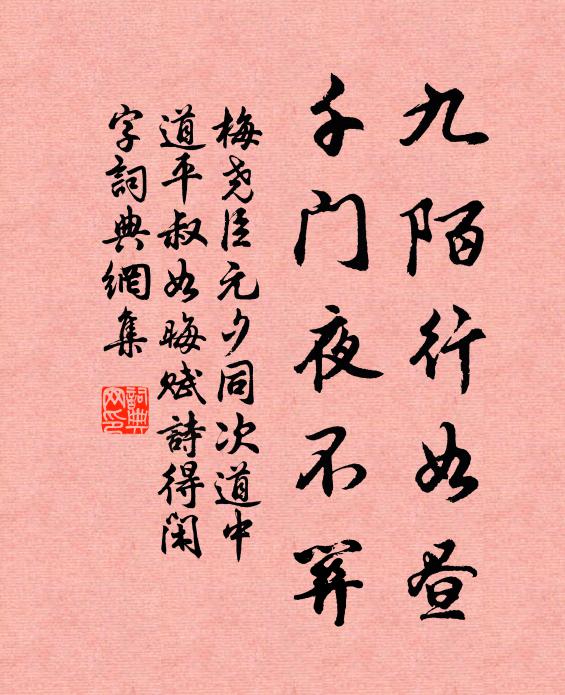 九陌行如昼
千门夜不关
梅尧臣元夕同次道中
道平叔如晦赋詩得闲
字詞典網集
詞典
网印